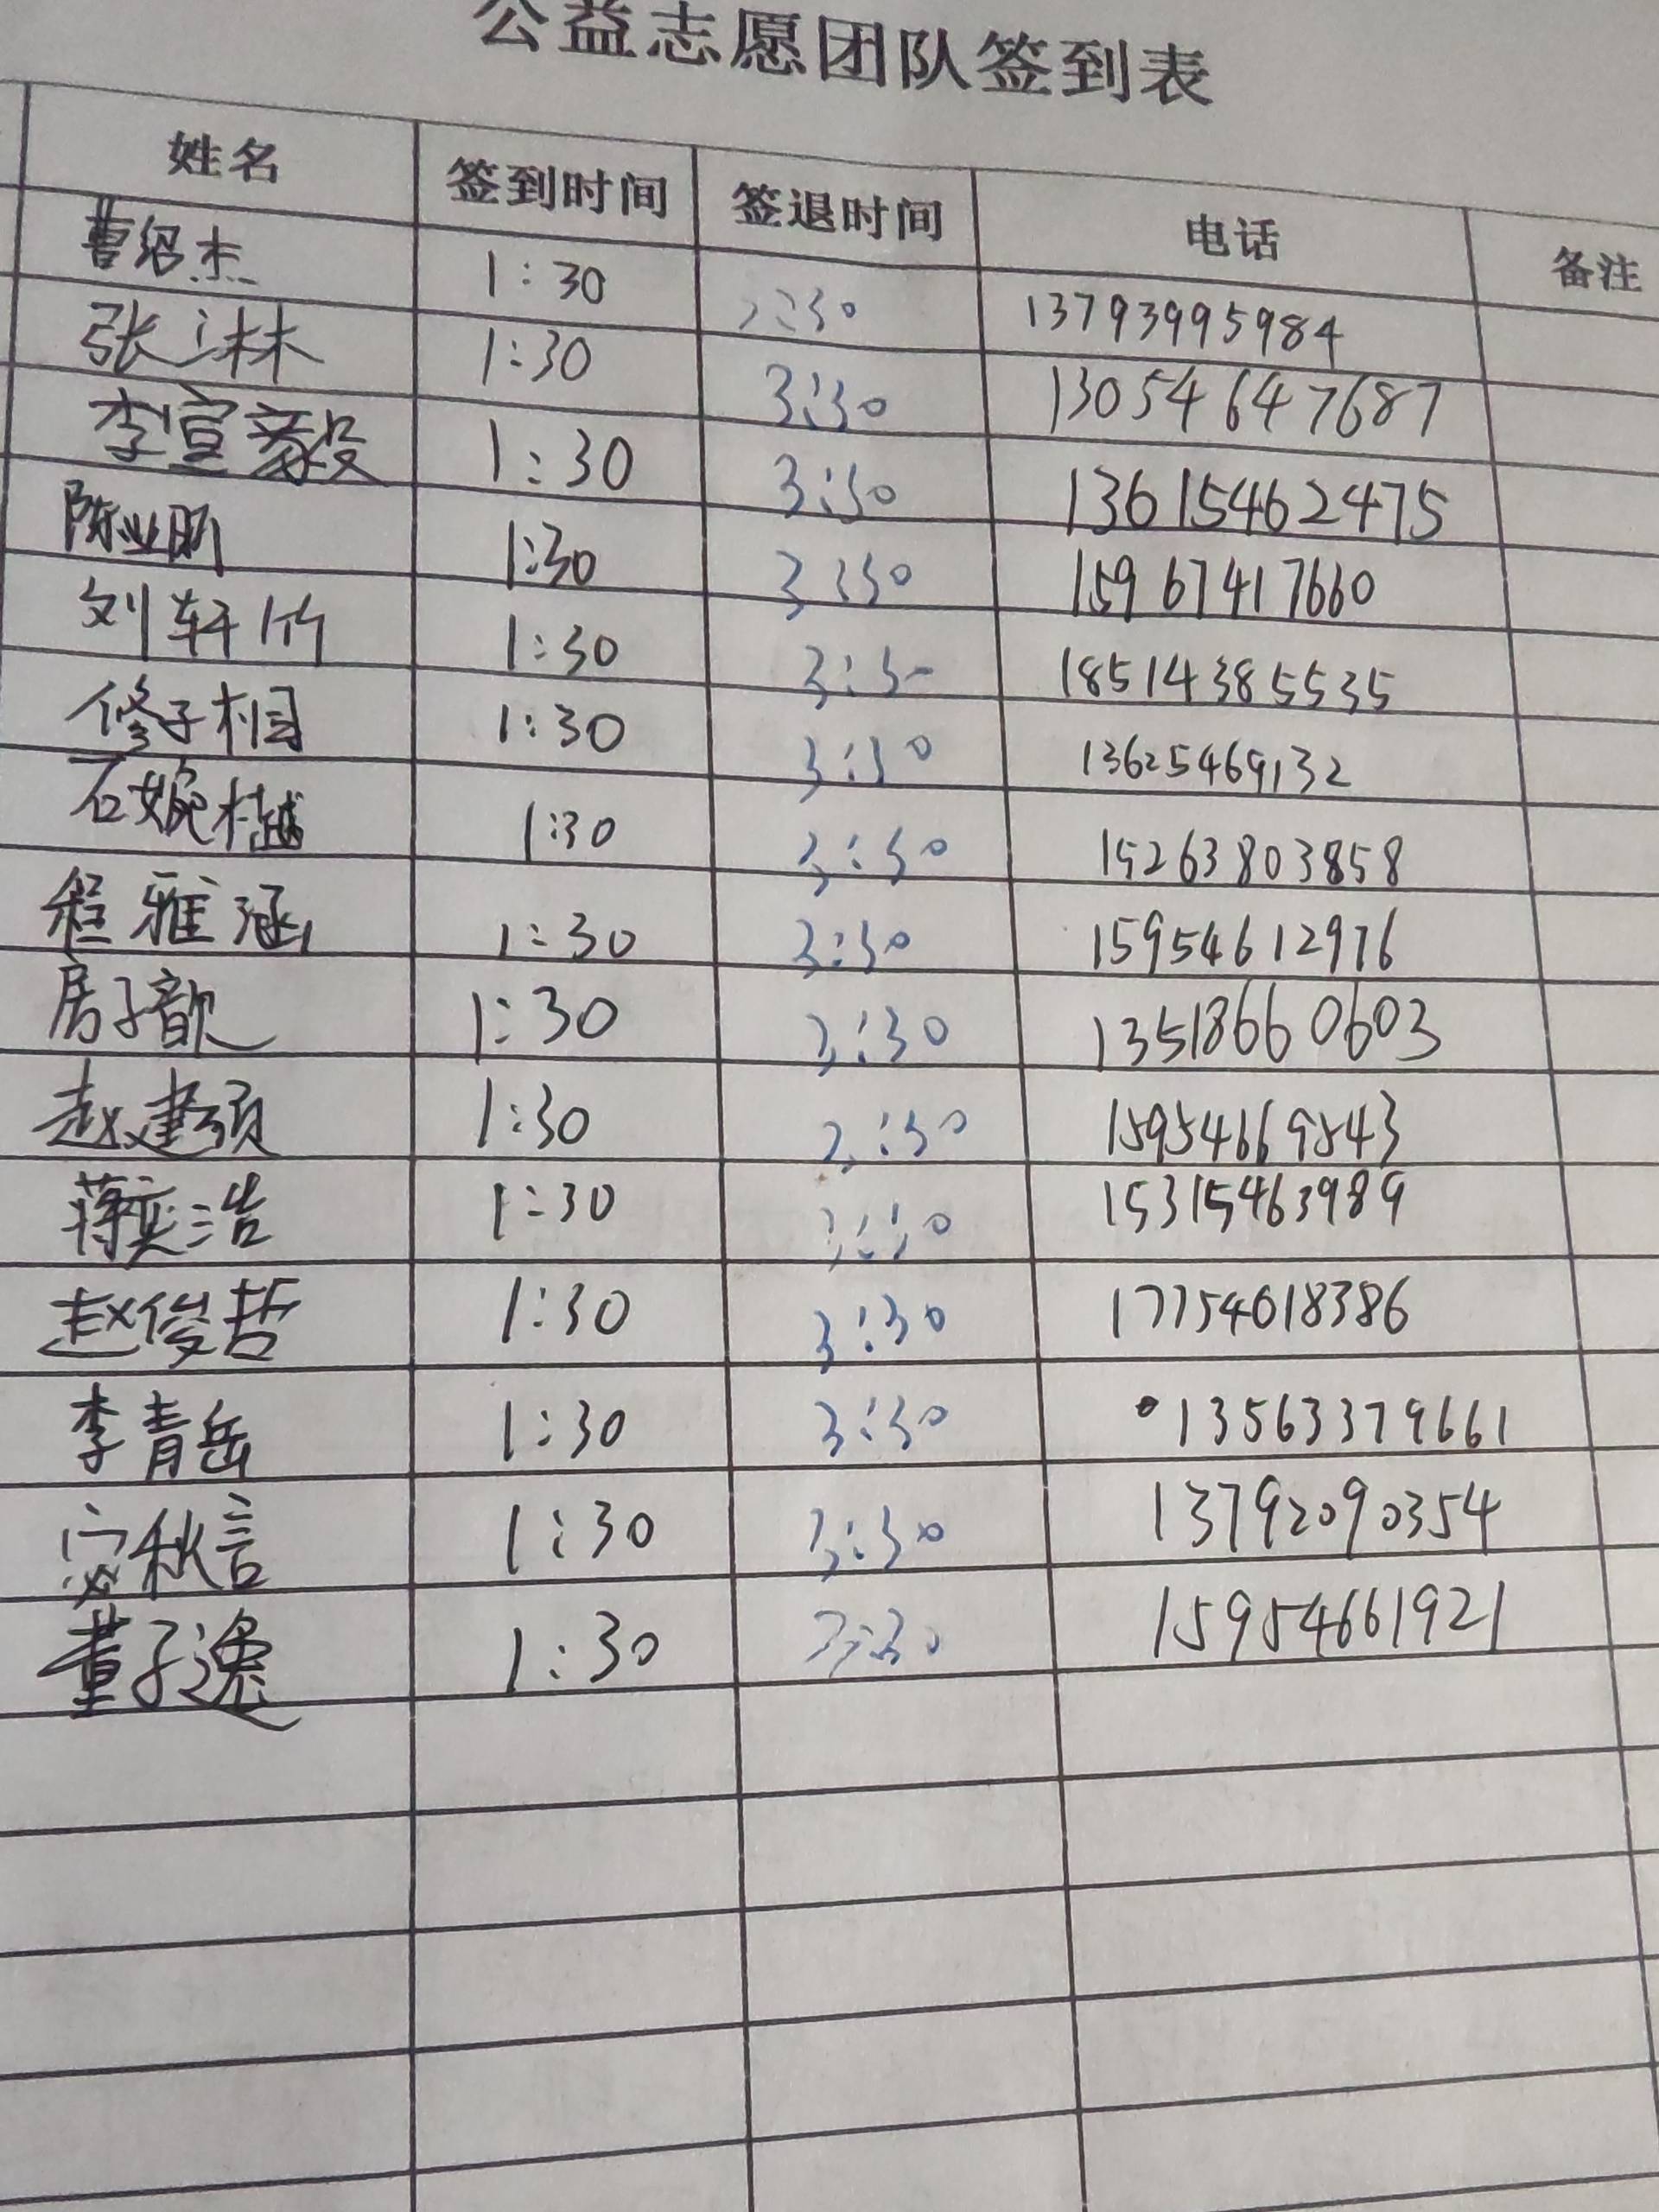 公益志愿团队签到表
姓名 签到时间 签退时间 电话 备注
曹绍杰 1:30 3:30 13793995984
张立林 1:30 3:30 13054647687
李宣毅 1:30 3:30 13615462475
陈业明 1:30 3:30 15967417660
刘轩竹 1:30 3:30 18514385535
修子桐 1:30 3:30 13625469132
石婉樾 1:30 3:30 15263803858
程雅涵 1:30 3:30 15954612976
房子歆 1:30 3:30 13518660603
赵建硕 1:30 3:30 15954669543
蒋奕浩 1:30 3:30 15315463989
赵俊哲 1:30 3:30 17754618386
李青岳 1:30 3:30 13563379661
宓秋言 1:30 3:30 13792090354
董子逸 1:30 3:30 15954661921